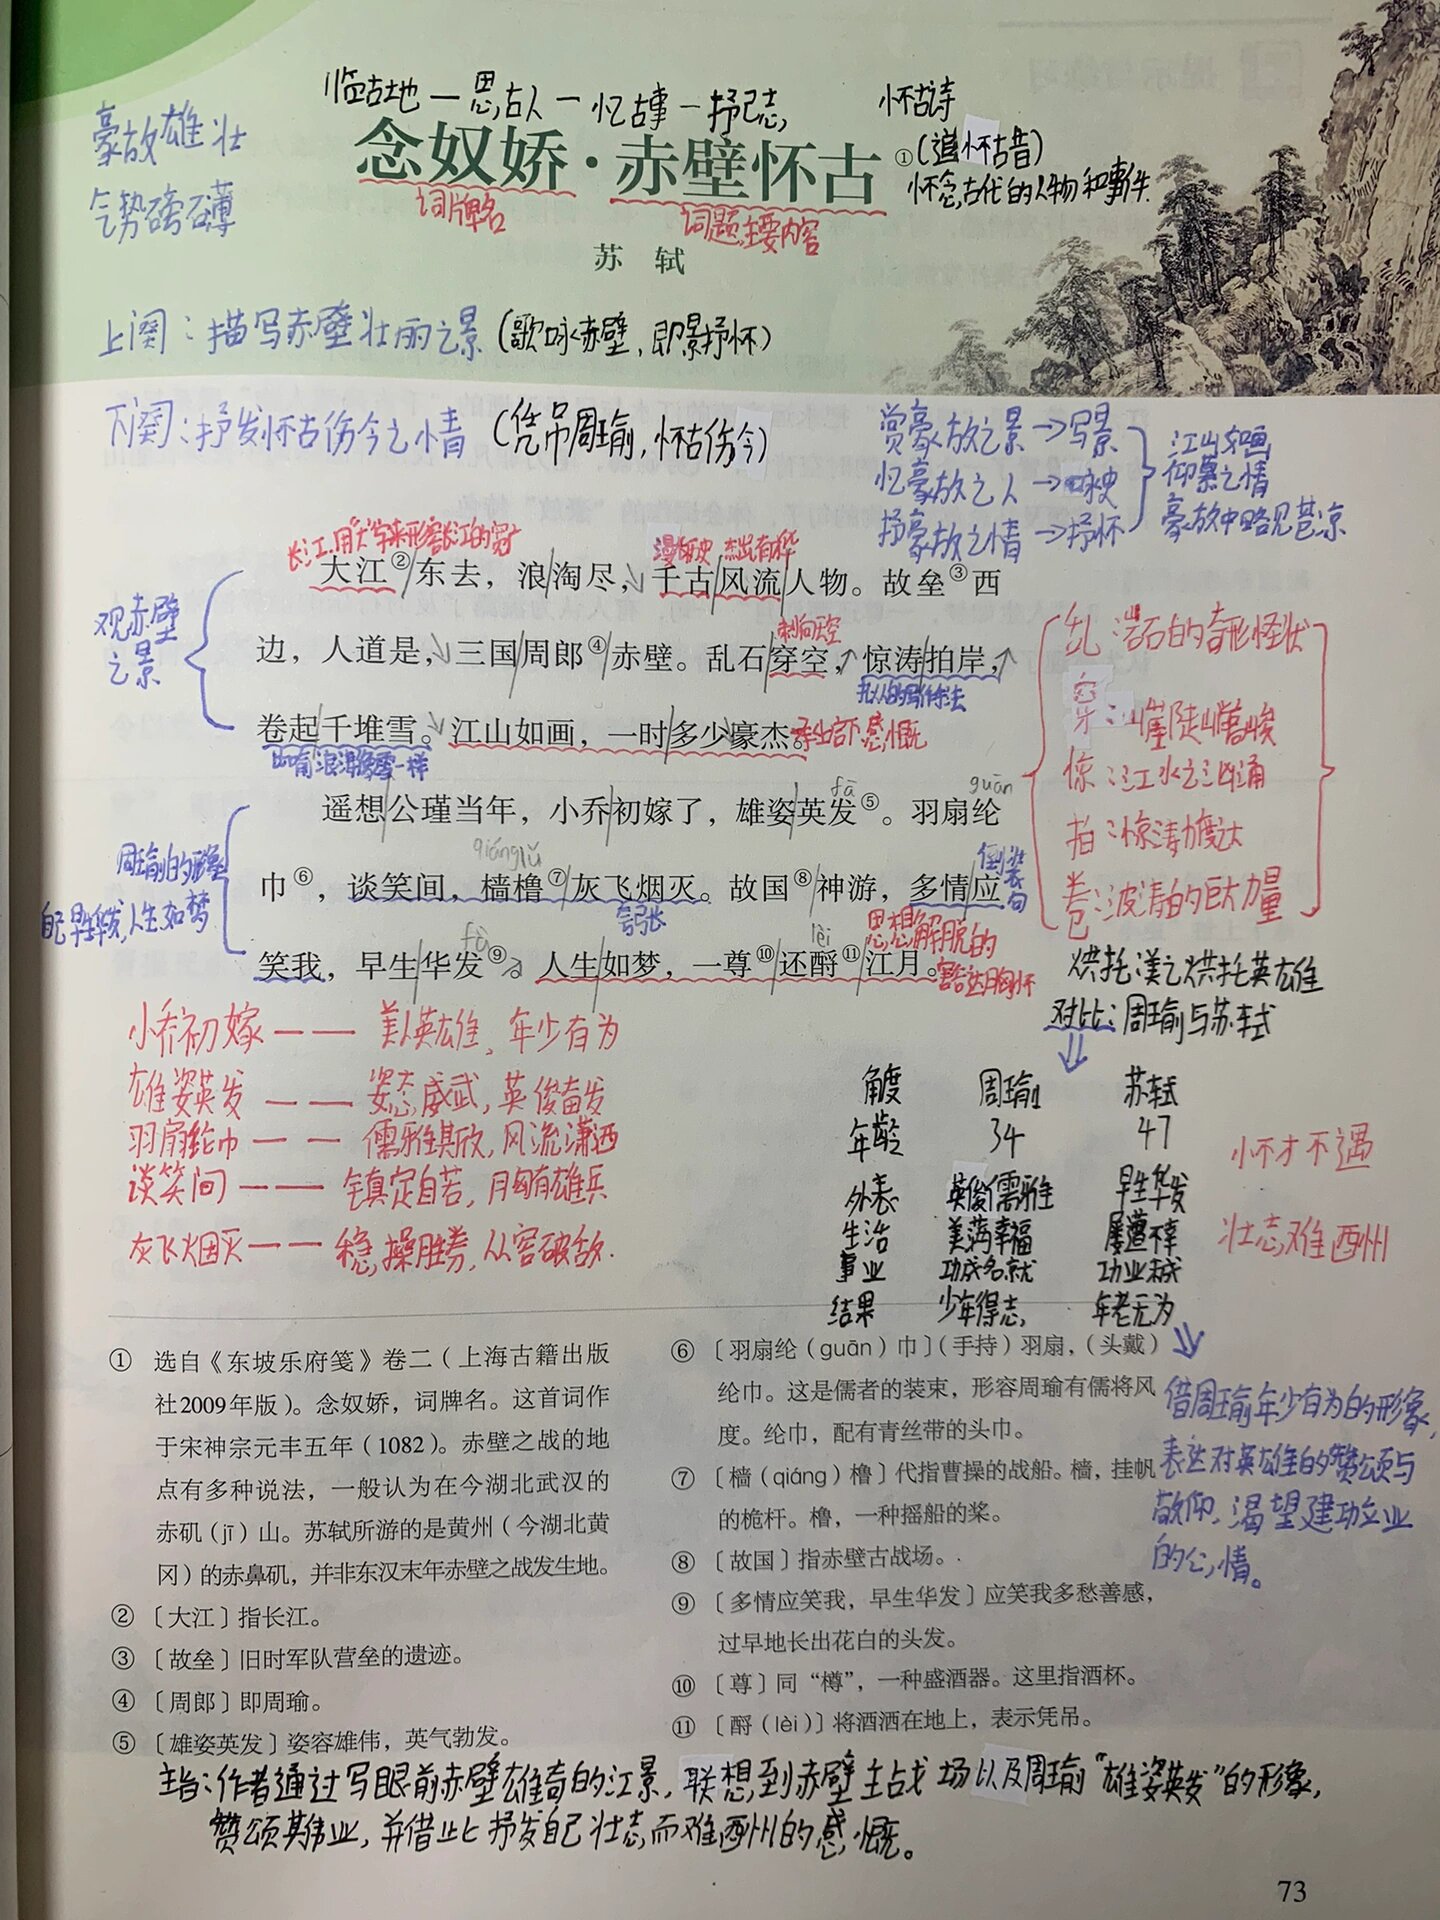 临古地—思古人—忆古事—抒己志
怀古诗
豪放雄壮
气势磅礴
念奴娇·赤壁怀古①
(追怀古昔)
怀念古代的人物和事件.
词牌名
词题,主要内容
苏 轼
上阕：描写赤壁壮丽之景(歌咏赤壁，即景抒怀)
下阕：抒发怀古伤今之情(凭吊周瑜，怀古伤今)
赏豪放之景→写景
忆豪放之人→咏史
抒豪放之情→抒怀
江山如画
仰慕之情
豪放中略见苍凉
长江.用"大"字来形容长江的宽广
漫长历史 杰出有才华
大江②东去，浪淘尽，千古风流人物。故垒③西
观赤壁
之景
刺向天空
边，人道是，三国周郎④赤壁。乱石穿空，惊涛拍岸，
拟人的写作手法
卷起千堆雪。江山如画，一时多少豪杰。
承上启下,感慨
乱：岩石的奇形怪状
穿：山崖陡峭高峻
惊：江水之汹涌
拍：惊涛力度大
卷：波涛的巨大力量
fā
guān
遥想公瑾当年，小乔初嫁了，雄姿英发⑤。羽扇纶
周瑜的形象
自己早生华发,人生如梦
qiánglǔ
倒装句
巾⑥，谈笑间，樯橹⑦灰飞烟灭。故国⑧神游，多情应
夸张
思想解脱的
豁达胸怀
fà
lèi
笑我，早生华发⑨，人生如梦，一尊⑩还酹⑪江月。
烘托：美人烘托英雄
对比：周瑜与苏轼
小乔初嫁——美人英雄、年少有为
雄姿英发——姿态威武，英俊奋发
羽扇纶巾——儒雅其欣,风流潇洒
谈笑间——镇定自若，胸有雄兵
灰飞烟灭——稳操胜券，从容破敌.
角度 周瑜 苏轼
年龄 34 47
外表 英俊儒雅 早生华发
生活 美满幸福 屡遭不幸
事业 功成名就 功业未成
结果 少年得志 年老无为
怀才不遇
壮志难酬
① 选自《东坡乐府笺》卷二（上海古籍出版
社2009年版）。念奴娇，词牌名。这首词作
于宋神宗元丰五年（1082）。赤壁之战的地
点有多种说法，一般认为在今湖北武汉的
赤矶（jī）山。苏轼所游的是黄州（今湖北黄
冈）的赤鼻矶，并非东汉末年赤壁之战发生地。
② 〔大江〕指长江。
③ 〔故垒〕旧时军队营垒的遗迹。
④ 〔周郎〕即周瑜。
⑤ 〔雄姿英发〕姿容雄伟，英气勃发。
⑥ 〔羽扇纶（guān）巾〕（手持）羽扇，（头戴）
纶巾。这是儒者的装束，形容周瑜有儒将风
度。纶巾，配有青丝带的头巾。
⑦ 〔樯（qiáng）橹〕代指曹操的战船。樯，挂帆
的桅杆。橹，一种摇船的桨。
⑧ 〔故国〕指赤壁古战场。
⑨ 〔多情应笑我，早生华发〕应笑我多愁善感，
过早地长出花白的头发。
⑩ 〔尊〕同“樽”，一种盛酒器。这里指酒杯。
⑪ 〔酹（lèi）〕将酒洒在地上，表示凭吊。
借周瑜年少有为的形象,
表达对英雄的赞颂与
敬仰，渴望建功立业
的心情。
主旨：作者通过写眼前赤壁雄奇的江景，联想到赤壁主战场以及周瑜"雄姿英发"的形象，
赞颂其伟业，并借此抒发自己壮志而难酬的感慨。
73